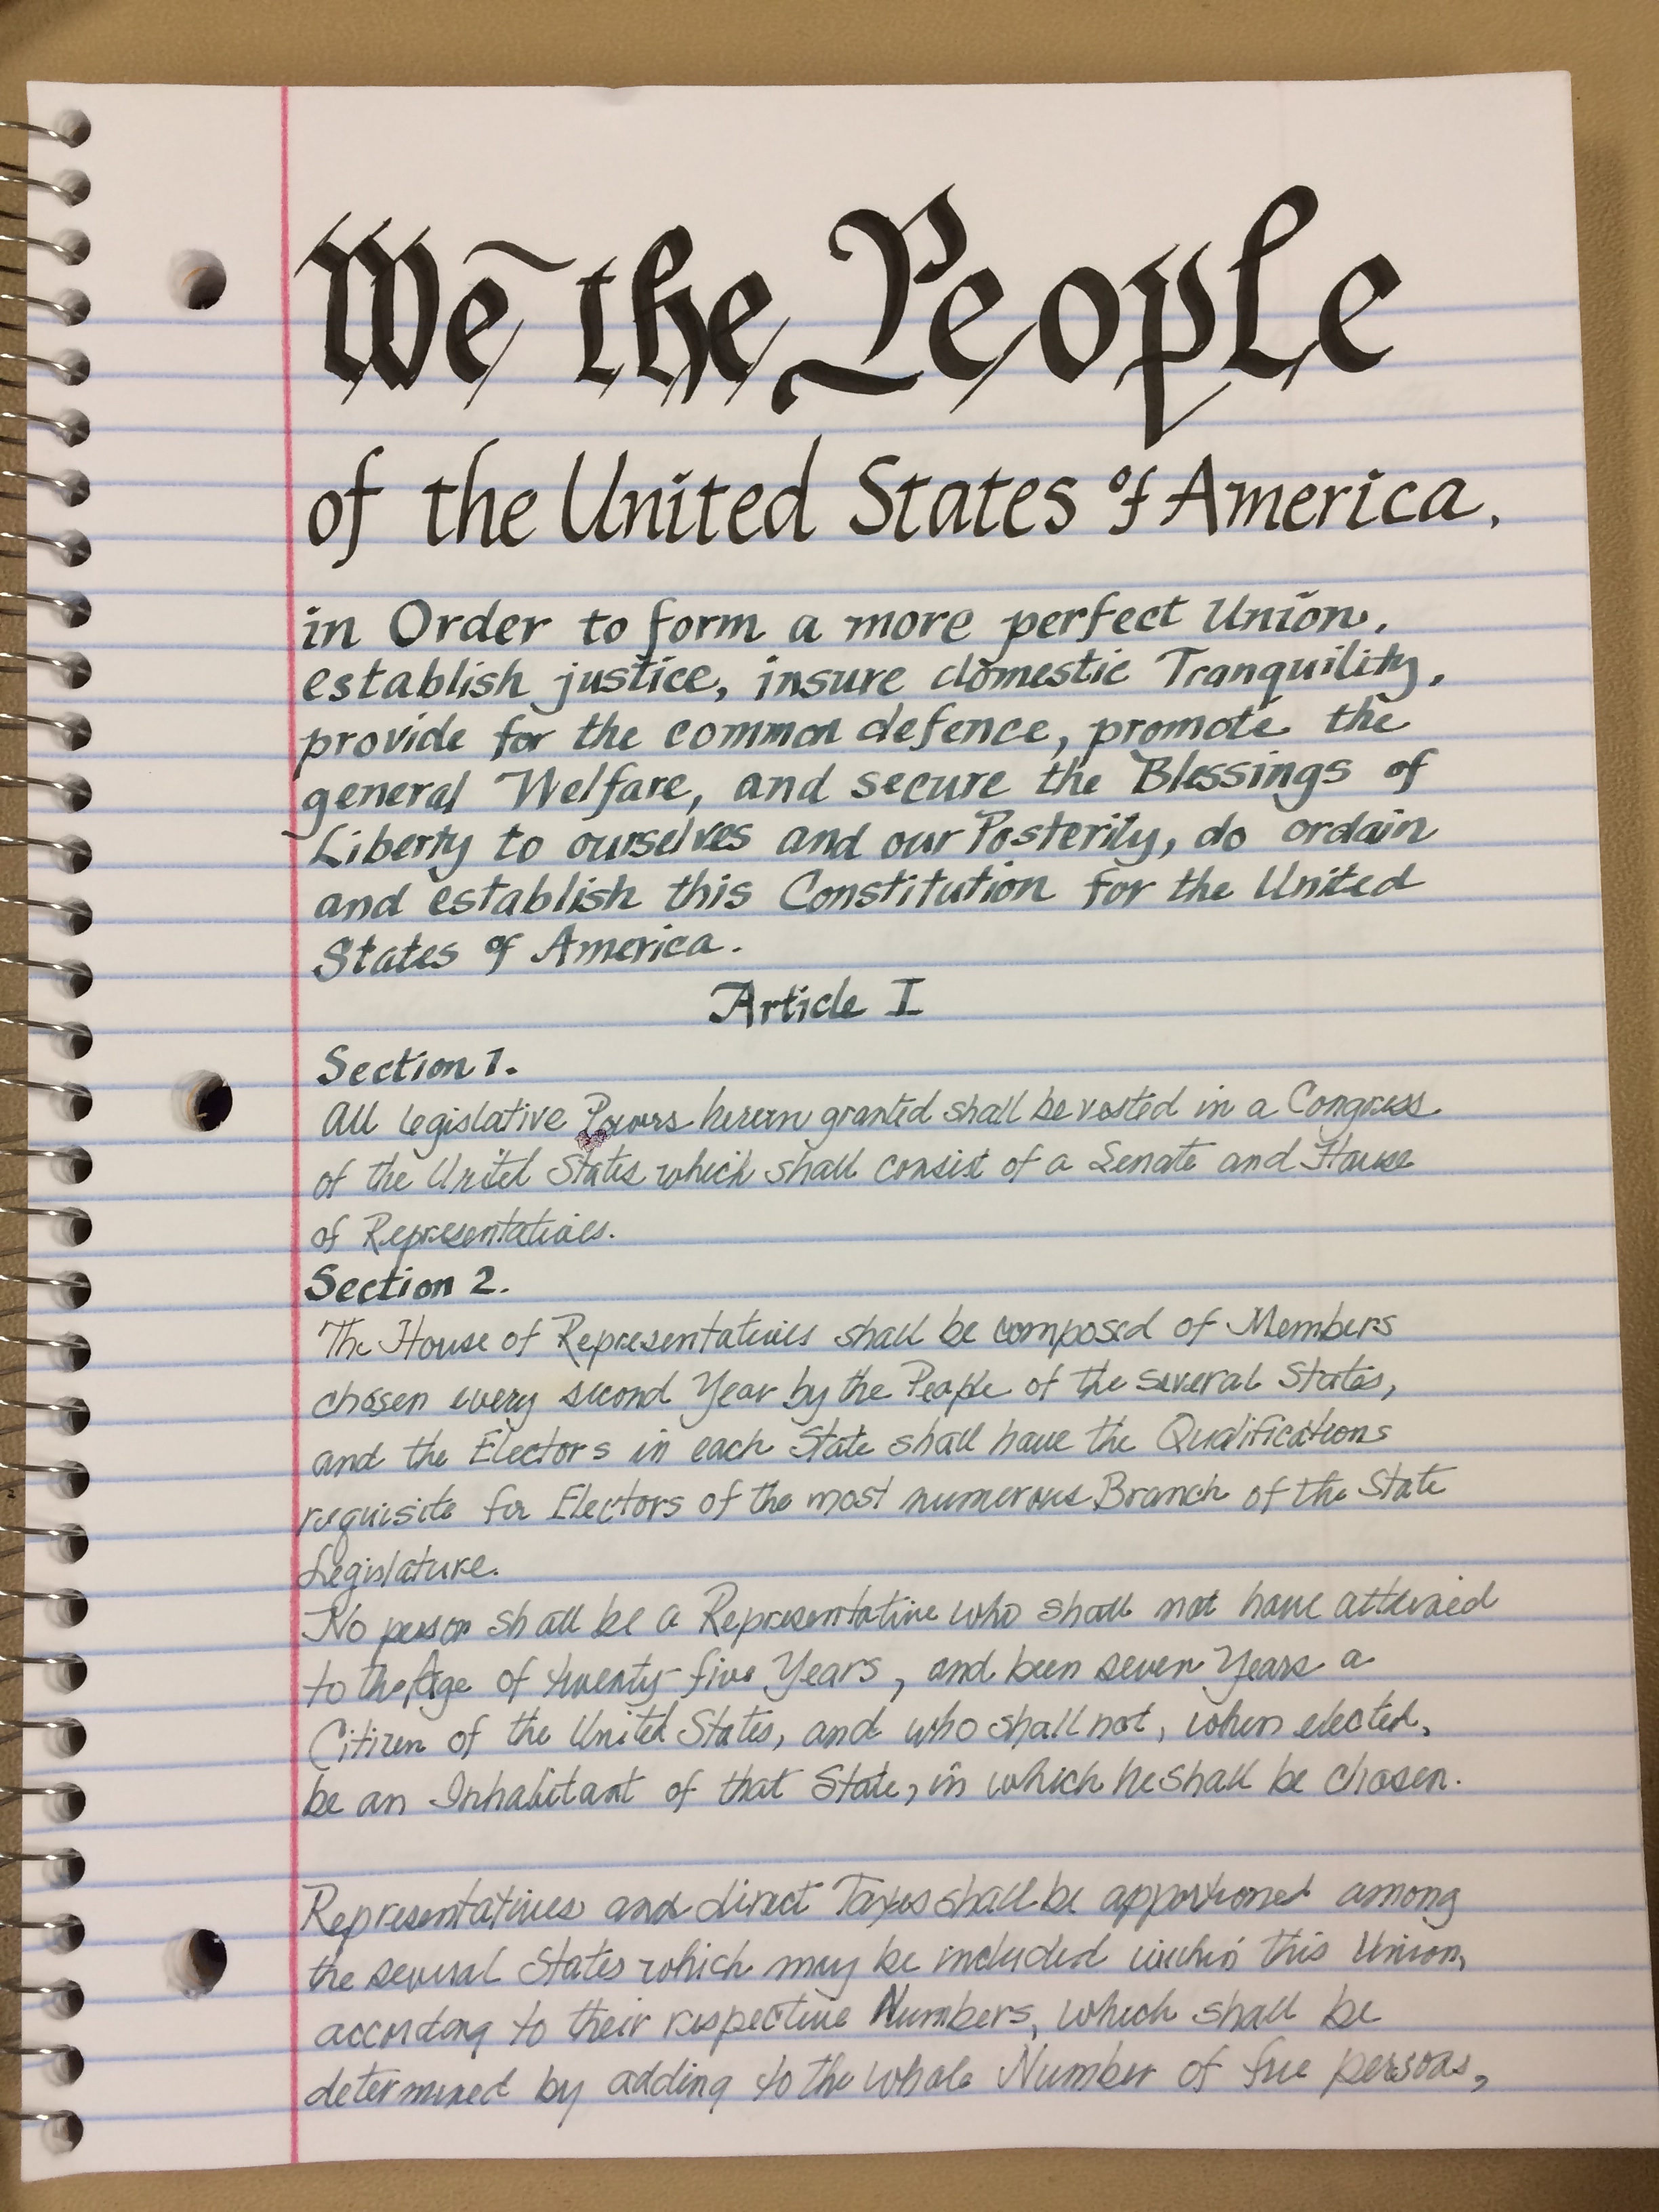 We the People
of the United States of America,
in Order to form a more perfect Union,
establish justice, insure domestic Tranquility,
provide for the common defence, promote the
general Welfare, and secure the Blessings of
Liberty to ourselves and our Posterity, do ordain
and establish this Constitution for the United
States of America.
Article I
Section 1.
All legislative Powers herein granted shall be vested in a Congress
of the United States which shall consist of a Senate and House
of Representatives.
Section 2.
The House of Representatives shall be composed of Members
chosen every second Year by the People of the several States,
and the Electors in each State shall have the Qualifications
requisite for Electors of the most numerous Branch of the State
Legislature.
No person shall be a Representative who shall not have attained
to the Age of twenty-five Years, and been seven Years a
Citizen of the United States, and who shall not, when elected,
be an Inhabitant of that State, in which he shall be chosen.
Representatives and direct Taxes shall be apportioned among
the several States which may be included within this Union,
according to their respective Numbers, which shall be
determined by adding to the whole Number of free persons,